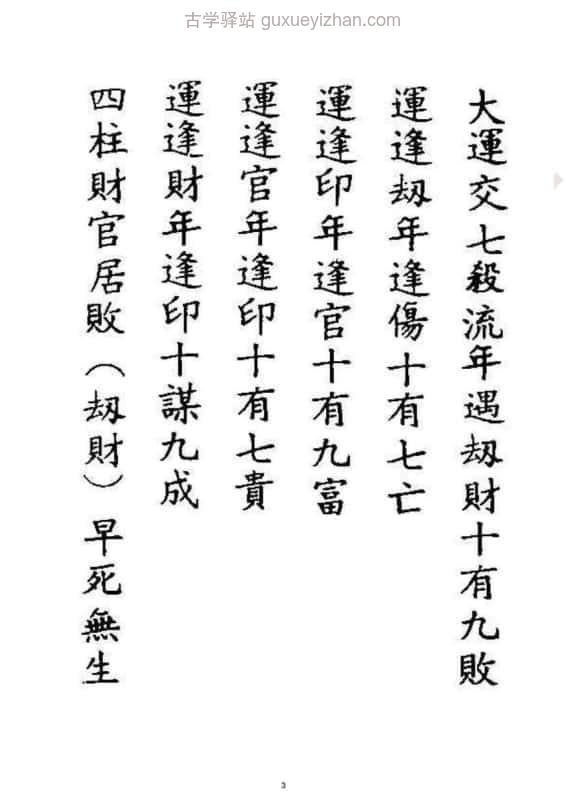 古学驿站 guxueyizhan.com
大運交七殺流年遇刼財十有九敗
運逢刼年逢傷十有七亡
運逢印年逢官十有九富
運逢官年逢印十有七貴
運逢財年逢印十謀九成
四柱財官居敗（刼財）早死無生
3